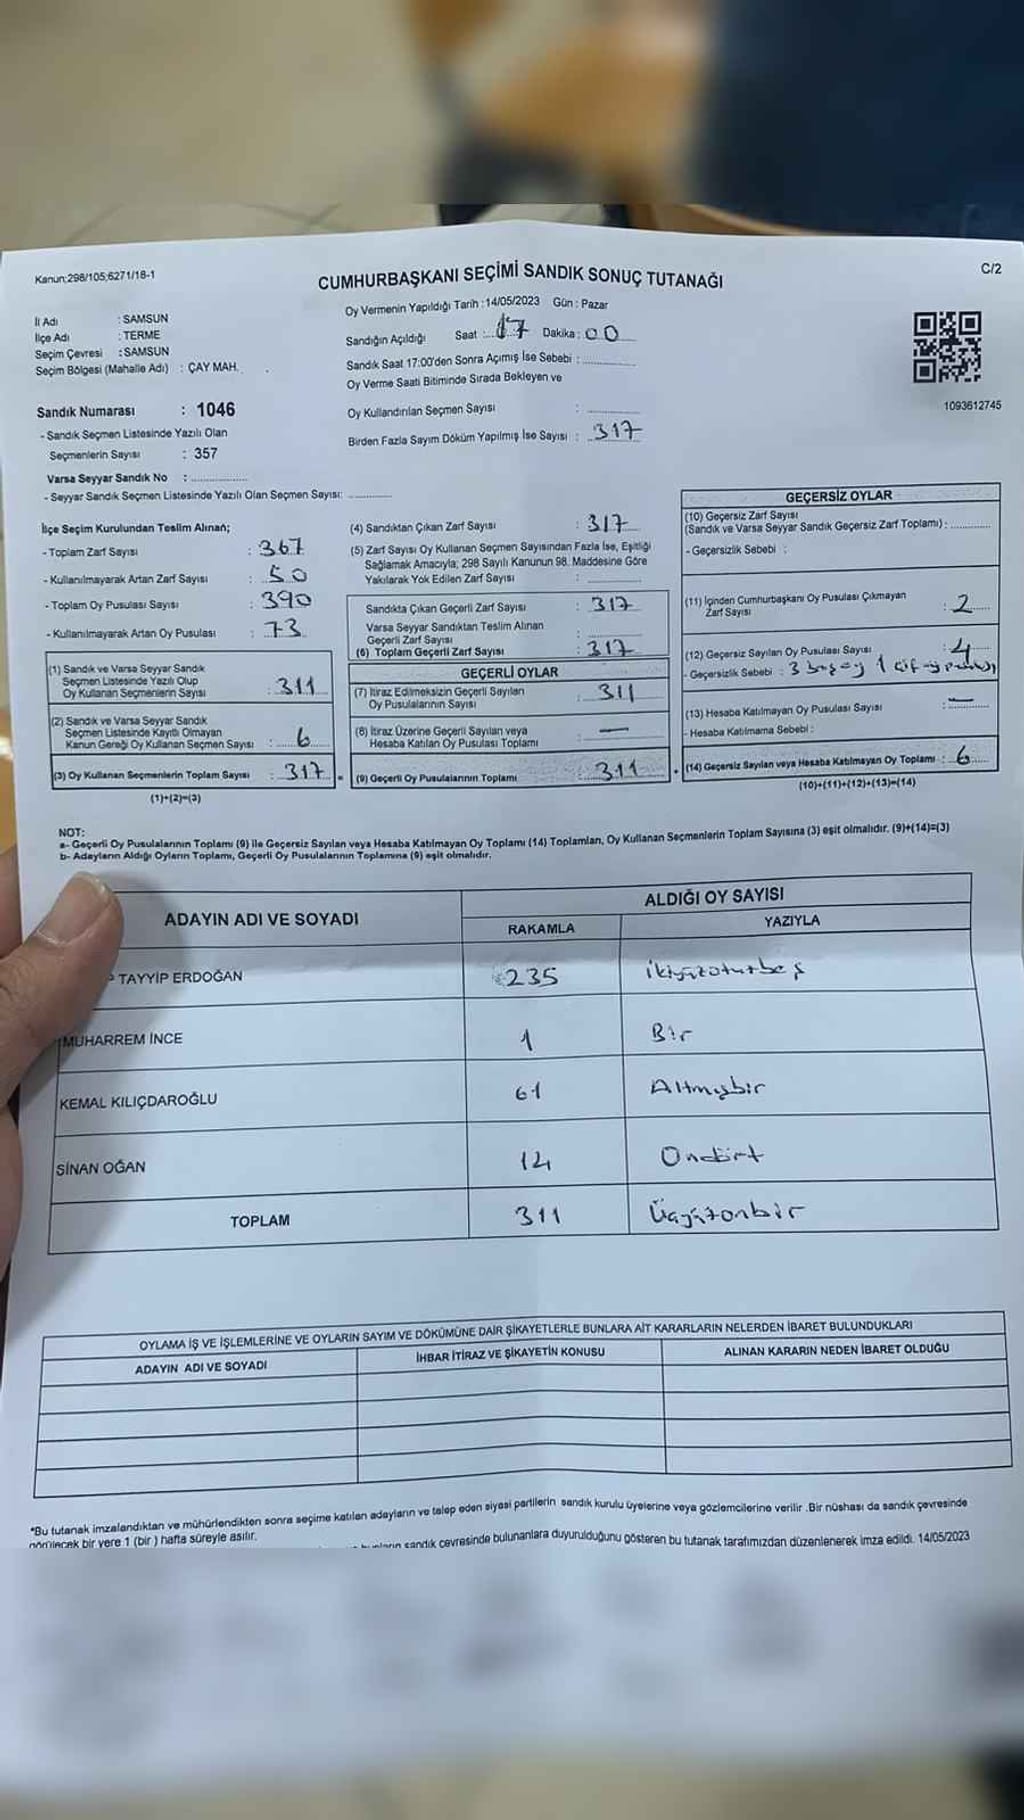 Kanun;298/105;6271/18-1
C/2
CUMHURBAŞKANI SEÇİMİ SANDIK SONUÇ TUTANAĞI
İl Adı : SAMSUN
İlçe Adı : TERME
Seçim Çevresi : SAMSUN
Seçim Bölgesi (Mahalle Adı) : ÇAY MAH.
Sandık Numarası : 1046
- Sandık Seçmen Listesinde Yazılı Olan
Seçmenlerin Sayısı : 357
Varsa Seyyar Sandık No : ................
- Seyyar Sandık Seçmen Listesinde Yazılı Olan Seçmen Sayısı: ............
Oy Vermenin Yapıldığı Tarih : 14/05/2023 Gün : Pazar
Sandığın Açıldığı Saat : 17 Dakika : 00
Sandık Saat 17:00'den Sonra Açımış İse Sebebi : ..............
Oy Verme Saati Bitiminde Sırada Bekleyen ve
Oy Kullandırılan Seçmen Sayısı : ..............
Birden Fazla Sayım Döküm Yapılmış İse Sayısı : 317
1093612745
İlçe Seçim Kurulundan Teslim Alınan;
- Toplam Zarf Sayısı : 367
- Kullanılmayarak Artan Zarf Sayısı : 50
- Toplam Oy Pusulası Sayısı : 390
- Kullanılmayarak Artan Oy Pusulası : 73
(1) Sandık ve Varsa Seyyar Sandık
Seçmen Listesinde Yazılı Olup
Oy Kullanan Seçmenlerin Sayısı : 311
(2) Sandık ve Varsa Seyyar Sandık
Seçmen Listesinde Kayıtlı Olmayan
Kanun Gereği Oy Kullanan Seçmen Sayısı : 6
(3) Oy Kullanan Seçmenlerin Toplam Sayısı : 317 =
(1)+(2)=(3)
(4) Sandıktan Çıkan Zarf Sayısı : 317
(5) Zarf Sayısı Oy Kullanan Seçmen Sayısından Fazla İse, Eşitliği
Sağlamak Amacıyla; 298 Sayılı Kanunun 98. Maddesine Göre
Yakılarak Yok Edilen Zarf Sayısı : ............
Sandıkta Çıkan Geçerli Zarf Sayısı : 317
Varsa Seyyar Sandıktan Teslim Alınan
Geçerli Zarf Sayısı : ............
(6) Toplam Geçerli Zarf Sayısı : 317
GEÇERLİ OYLAR
(7) İtiraz Edilmeksizin Geçerli Sayılan
Oy Pusulalarının Sayısı : 311
(8) İtiraz Üzerine Geçerli Sayılan veya
Hesaba Katılan Oy Pusulası Toplamı : —
(9) Geçerli Oy Pusulalarının Toplamı : 311 +
GEÇERSİZ OYLAR
(10) Geçersiz Zarf Sayısı
(Sandık ve Varsa Seyyar Sandık Geçersiz Zarf Toplamı) : ............
- Geçersizlik Sebebi :
(11) İçinden Cumhurbaşkanı Oy Pusulası Çıkmayan
Zarf Sayısı : 2
(12) Geçersiz Sayılan Oy Pusulası Sayısı : 4
- Geçersizlik Sebebi : 3 boş oy 1 çift oy
(13) Hesaba Katılmayan Oy Pusulası Sayısı : —
- Hesaba Katılmama Sebebi :
(14) Geçersiz Sayılan veya Hesaba Katılmayan Oy Toplamı : 6
(10)+(11)+(12)+(13)=(14)
NOT:
a- Geçerli Oy Pusulalarının Toplamı (9) ile Geçersiz Sayılan veya Hesaba Katılmayan Oy Toplamı (14) Toplamları, Oy Kullanan Seçmenlerin Toplam Sayısına (3) eşit olmalıdır. (9)+(14)=(3)
b- Adayların Aldığı Oyların Toplamı, Geçerli Oy Pusulalarının Toplamına (9) eşit olmalıdır.
ADAYIN ADI VE SOYADI
ALDIĞI OY SAYISI
RAKAMLA YAZIYLA
TAYYİP ERDOĞAN 235 ikiyüzoturbeş
MUHARREM İNCE 1 Bir
KEMAL KILIÇDAROĞLU 61 Altmışbir
SİNAN OĞAN 14 Ondört
TOPLAM 311 Üçyüzonbir
OYLAMA İŞ VE İŞLEMLERİNE VE OYLARIN SAYIM VE DÖKÜMÜNE DAİR ŞİKAYETLERLE BUNLARA AİT KARARLARIN NELERDEN İBARET BULUNDUKLARI
ADAYIN ADI VE SOYADI İHBAR İTİRAZ VE ŞİKAYETİN KONUSU ALINAN KARARIN NEDEN İBARET OLDUĞU
*Bu tutanak imzalandıktan ve mühürlendikten sonra seçime katılan adayların ve talep eden siyasi partilerin sandık kurulu üyelerine veya gözlemcilerine verilir .Bir nüshası da sandık çevresinde
görülecek bir yere 1 (bir ) hafta süreyle asılır.
sandık çevresinde bulunanlara duyurulduğunu gösteren bu tutanak tarafımızdan düzenlenerek imza edildi. 14/05/2023